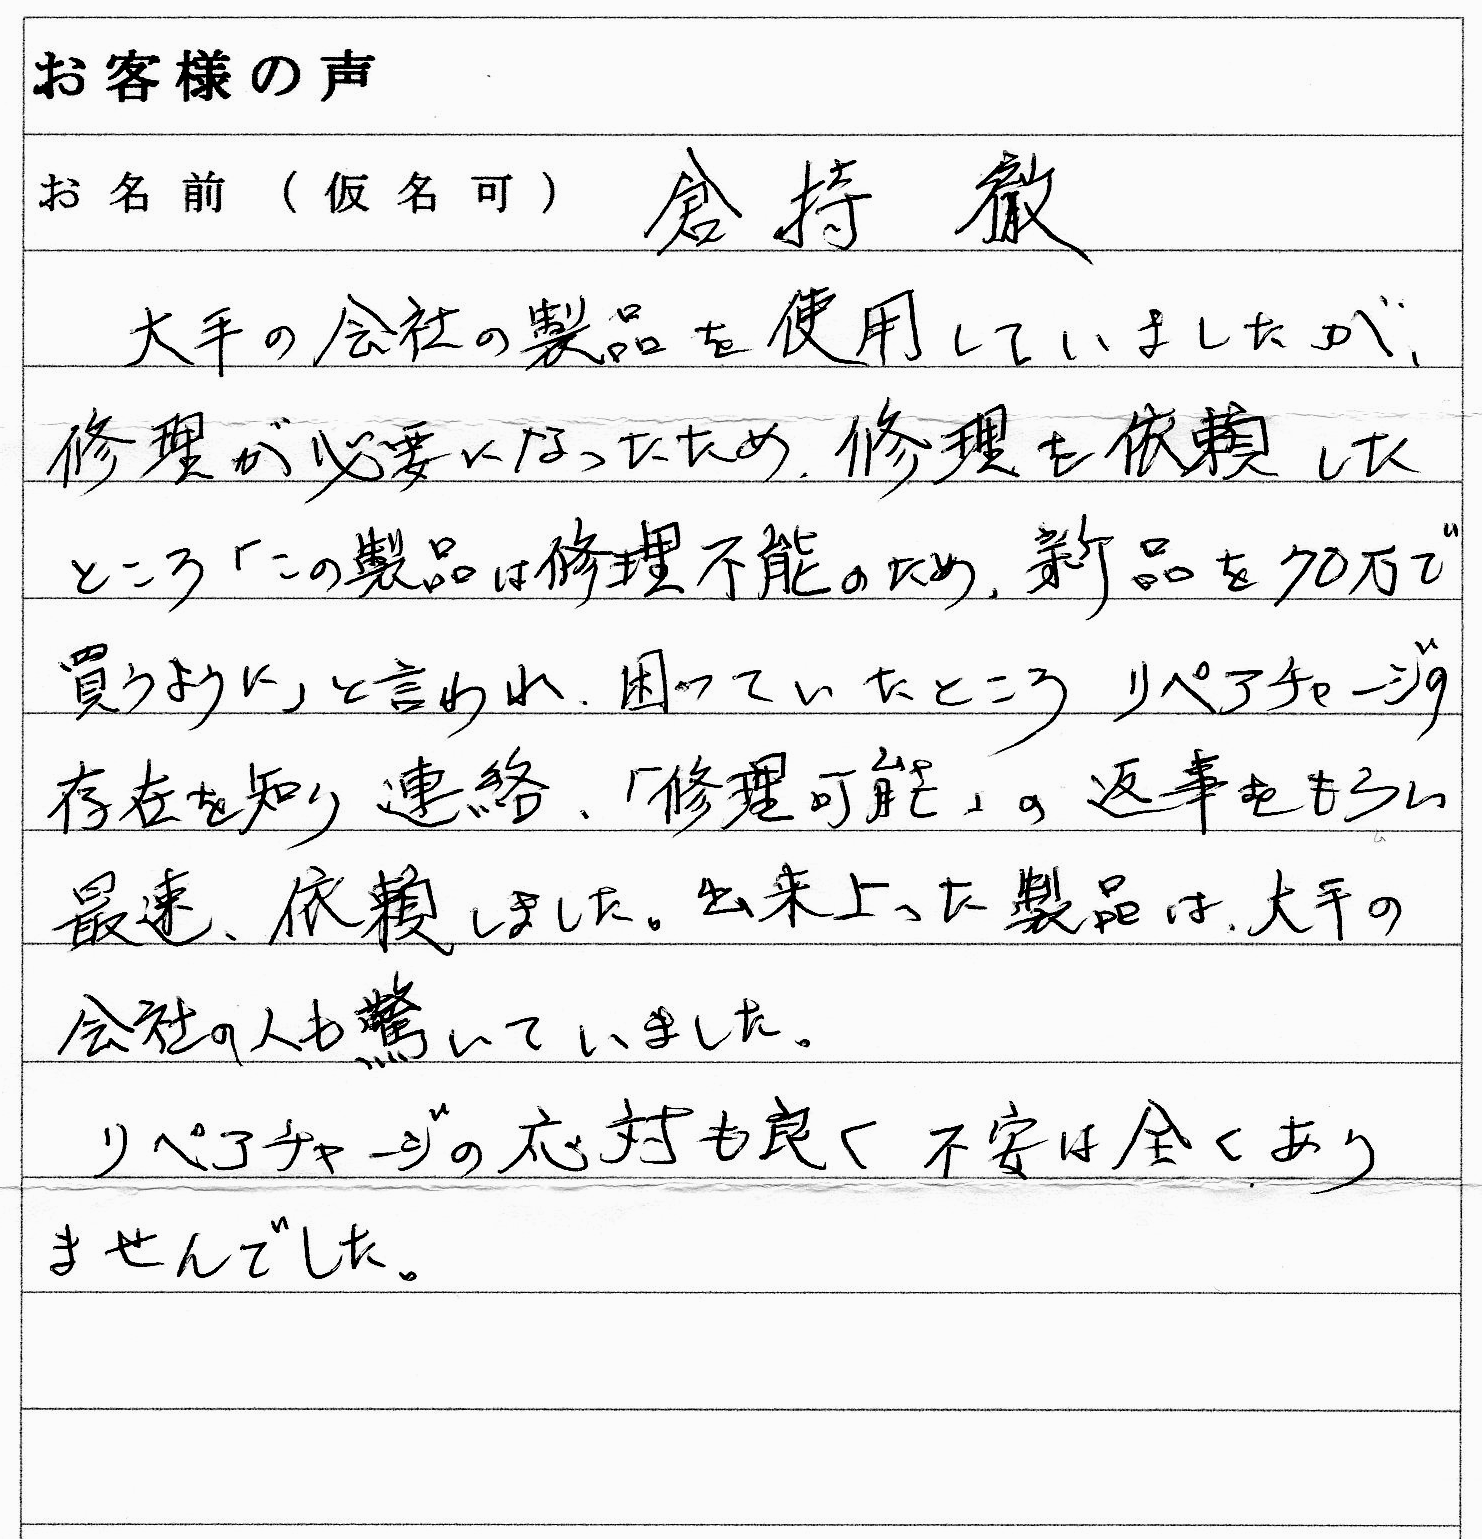 お客様の声
お名前（仮名可） 倉持 徹
大手の会社の製品を使用していましたが、
修理が必要になったため、修理を依頼した
ところ「この製品は修理不能のため、新品を70万で
買うように」と言われ、困っていたところ リペアチャージの
存在を知り 連絡、「修理可能」の 返事をもらい
最速、依頼しました。出来上った製品は、大手の
会社の人も驚いていました。
リペアチャージの応対も良く 不安は全くあり
ませんでした。